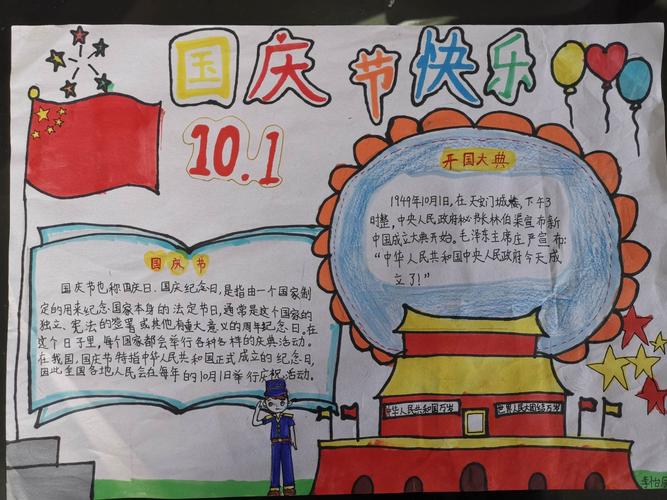 国庆节快乐
10.1
开国大典
1949年10月1日,在天安门城楼,下午3
时整,中央人民政府秘书长林伯渠宣布新
中国成立大典开始。毛泽东主席庄严宣布:
“中华人民共和国中央人民政府今天成
立了!”
国庆节
国庆节也称国庆日、国庆纪念日,是指由一个国家制
定的用来纪念国家本身的法定节日,通常是这个国家的
独立、宪法的签署或其他有重大意义的周年纪念日。在
这个日子里,每个国家都会举行各种各样的庆典活动。
在我国,国庆节特指中华人民共和国正式成立的纪念日,
因此全国各地人民会在每年的10月1日举行庆祝活动。
中华人民共和国万岁
世界人民大团结万岁
李怡